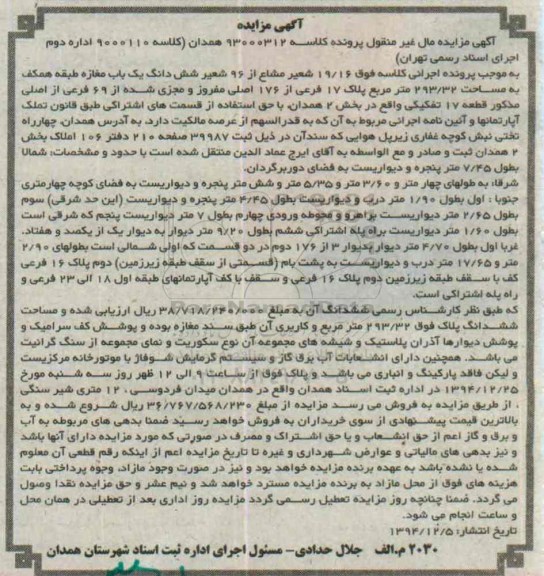 آگهی مزایده
آگهی مزایده مال غیر منقول پرونده کلاســه ۹۳۰۰۰۳۱۲ همدان (کلاسه ۹۰۰۰۱۱۰ اداره دوم
اجرای اسناد رسمی تهران)
به موجب پرونده اجرائی کلاسه فوق ۱۹/۱۶ شعیر مشاع از ۹۶ شعیر شش دانگ یک باب مغازه طبقه همکف
به مساحت ۲۹۳/۳۲ متر مربع پلاک ۱۷ فرعی از ۱۷۶ اصلی مفروز و مجزی شده از ۶۹ فرعی از اصلی
مذکور قطعه ۱۷ تفکیکی واقع در بخش ۲ همدان، با حق استفاده از قسمت های اشتراکی طبق قانون تملک
آپارتمانها و آئین نامه اجرائی مربوط به آن که به قدرالسهم از عرصه مالکیت دارد، به آدرس همدان، چهارراه
تختی نبش کوچه غفاری زیرپل هوایی که سندآن در ذیل ثبت ۳۹۹۸۷ صفحه ۲۱۰ دفتر ۱۰۶ املاک بخش
۲ همدان ثبت و صادر و مع الواسطه به آقای ایرج عماد الدین منتقل شده است با حدود و مشخصات: شمالا
بطول ۷/۴۵ متر پنجره و دیواریست به فضای دوربرگردان.
شرقا: به طولهای چهار متر و ۳/۶۰ متر و ۵/۳۵ متر و شش متر پنجره و دیواریست به فضای کوچه چهارمتری
جنوبا : اول بطول ۱/۹۰ متر درب و دیواریست بطول ۴/۴۵ متر پنجره و دیواریست (این حد شرقی) سوم
بطول ۲/۶۵ متر دیواریســت براهرو و محوطه ورودی چهارم بطول ۷ متر دیواریست پنجم که شرقی است
بطول ۱/۶۰ متر دیواریست براه پله اشتراکی ششم بطول ۹/۲۰ متر دیوار به دیوار یک از یکصد و هفتاد.
غربا اول بطول ۴/۷۰ متر دیوار بدیوار ۳ از ۱۷۶ دوم در دو قسمت که اولی شمالی است بطولهای ۲/۹۰
متر و ۱۷/۶۵ متر درب و دیواریست به پشت بام (قسمتی از سقف طبقه زیرزمین) دوم پلاک ۱۶ فرعی
کف با سـقف طبقه زیرزمین دوم پلاک ۱۶ فرعی و سـقف با کف آپارتمانهای طبقه اول ۱۸ الی ۲۳ فرعی و
راه پله اشتراکی است.
که طبق نظر کارشناس رسمی ششدانگ آن به مبلغ ۳۸/۷۱۸/۲۴۰/۰۰۰ ریال ارزیابی شده و مساحت
ششدانگ پلاک فوق ۲۹۳/۳۲ متر مربع و کاربری آن طبق سـند مغازه بوده و پوشش کف سرامیک و
پوشش دیوارها آذران پلاستیک و شیشه های مجموعه آن نوع سکوریت و نمای مجموعه از سنگ گرانیت
می باشـد. همچنین دارای انشـعابات آب برق گاز و سیستم گرمایش شـوفاژ با موتورخانه مرکزیست
و لیکن فاقد پارکینگ و انباری می باشـد و پلاک فوق از ساعت ۹ الی ۱۲ ظهر روز سـه شـنبه مورخ
۱۳۹۴/۱۲/۲۵ در اداره ثبت اسـناد همدان واقع در همدان میدان فردوسـی ، ۱۲ متری شیر سنگی
، از طریق مزایده به فروش می رسـد مزایده از مبلغ ۳۶/۷۶۷/۵۶۸/۲۳۰ ریال شـروع شده و به
بالاترین قیمت پیشـنهادی از سوی خریداران به فروش خواهد رسـید ضمنا بدهی های مربوطه به آب
و برق و گاز اعم از حق انشـعاب و یا حق اشـتراک و مصرف در صورتی که مورد مزایده دارای آنها باشد
و نیز بدهی های مالیاتی و عوارض شـهرداری و غیره تا تاریخ مزایده اعم از اینکه رقم قطعی آن معلوم
شده یا نشده باشد به عهده برنده مزایده خواهد بود و نیز در صورت وجود مازاد، وجوه پرداختی بابت
هزینه های فوق از محل مازاد به برنده مزایده مسترد خواهد شد و نیم عشر و حق مزایده نقدا وصول
می گردد. ضمنا چنانچه روز مزایده تعطیل رسـمی گردد مزایده روز اداری بعد از تعطیلی در همان محل
و ساعت انجام می شود.
تاریخ انتشار: ۱۳۹۴/۱۲/۵
۲۰۳۰ م.الف جلال حدادی- مسئول اجرای اداره ثبت اسناد شهرستان همدان